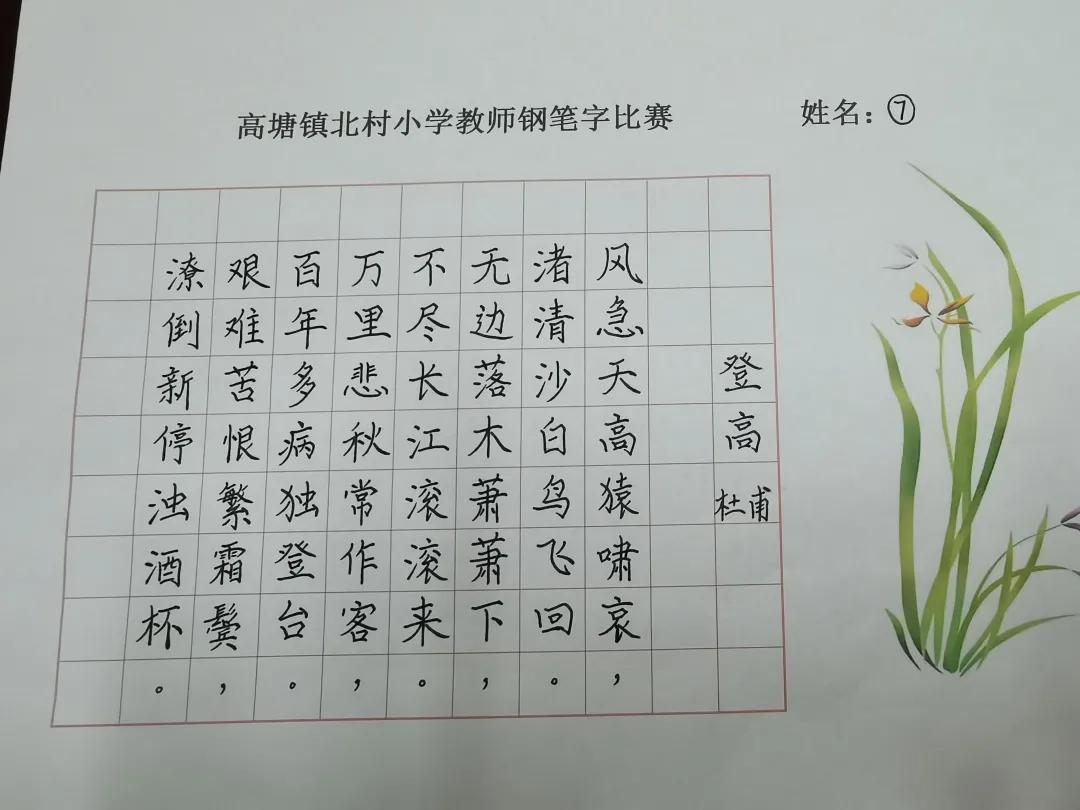 高塘镇北村小学教师钢笔字比赛
姓名：⑦
登高
杜甫
风急天高猿啸哀，
渚清沙白鸟飞回。
无边落木萧萧下，
不尽长江滚滚来。
万里悲秋常作客，
百年多病独登台。
艰难苦恨繁霜鬓，
潦倒新停浊酒杯。